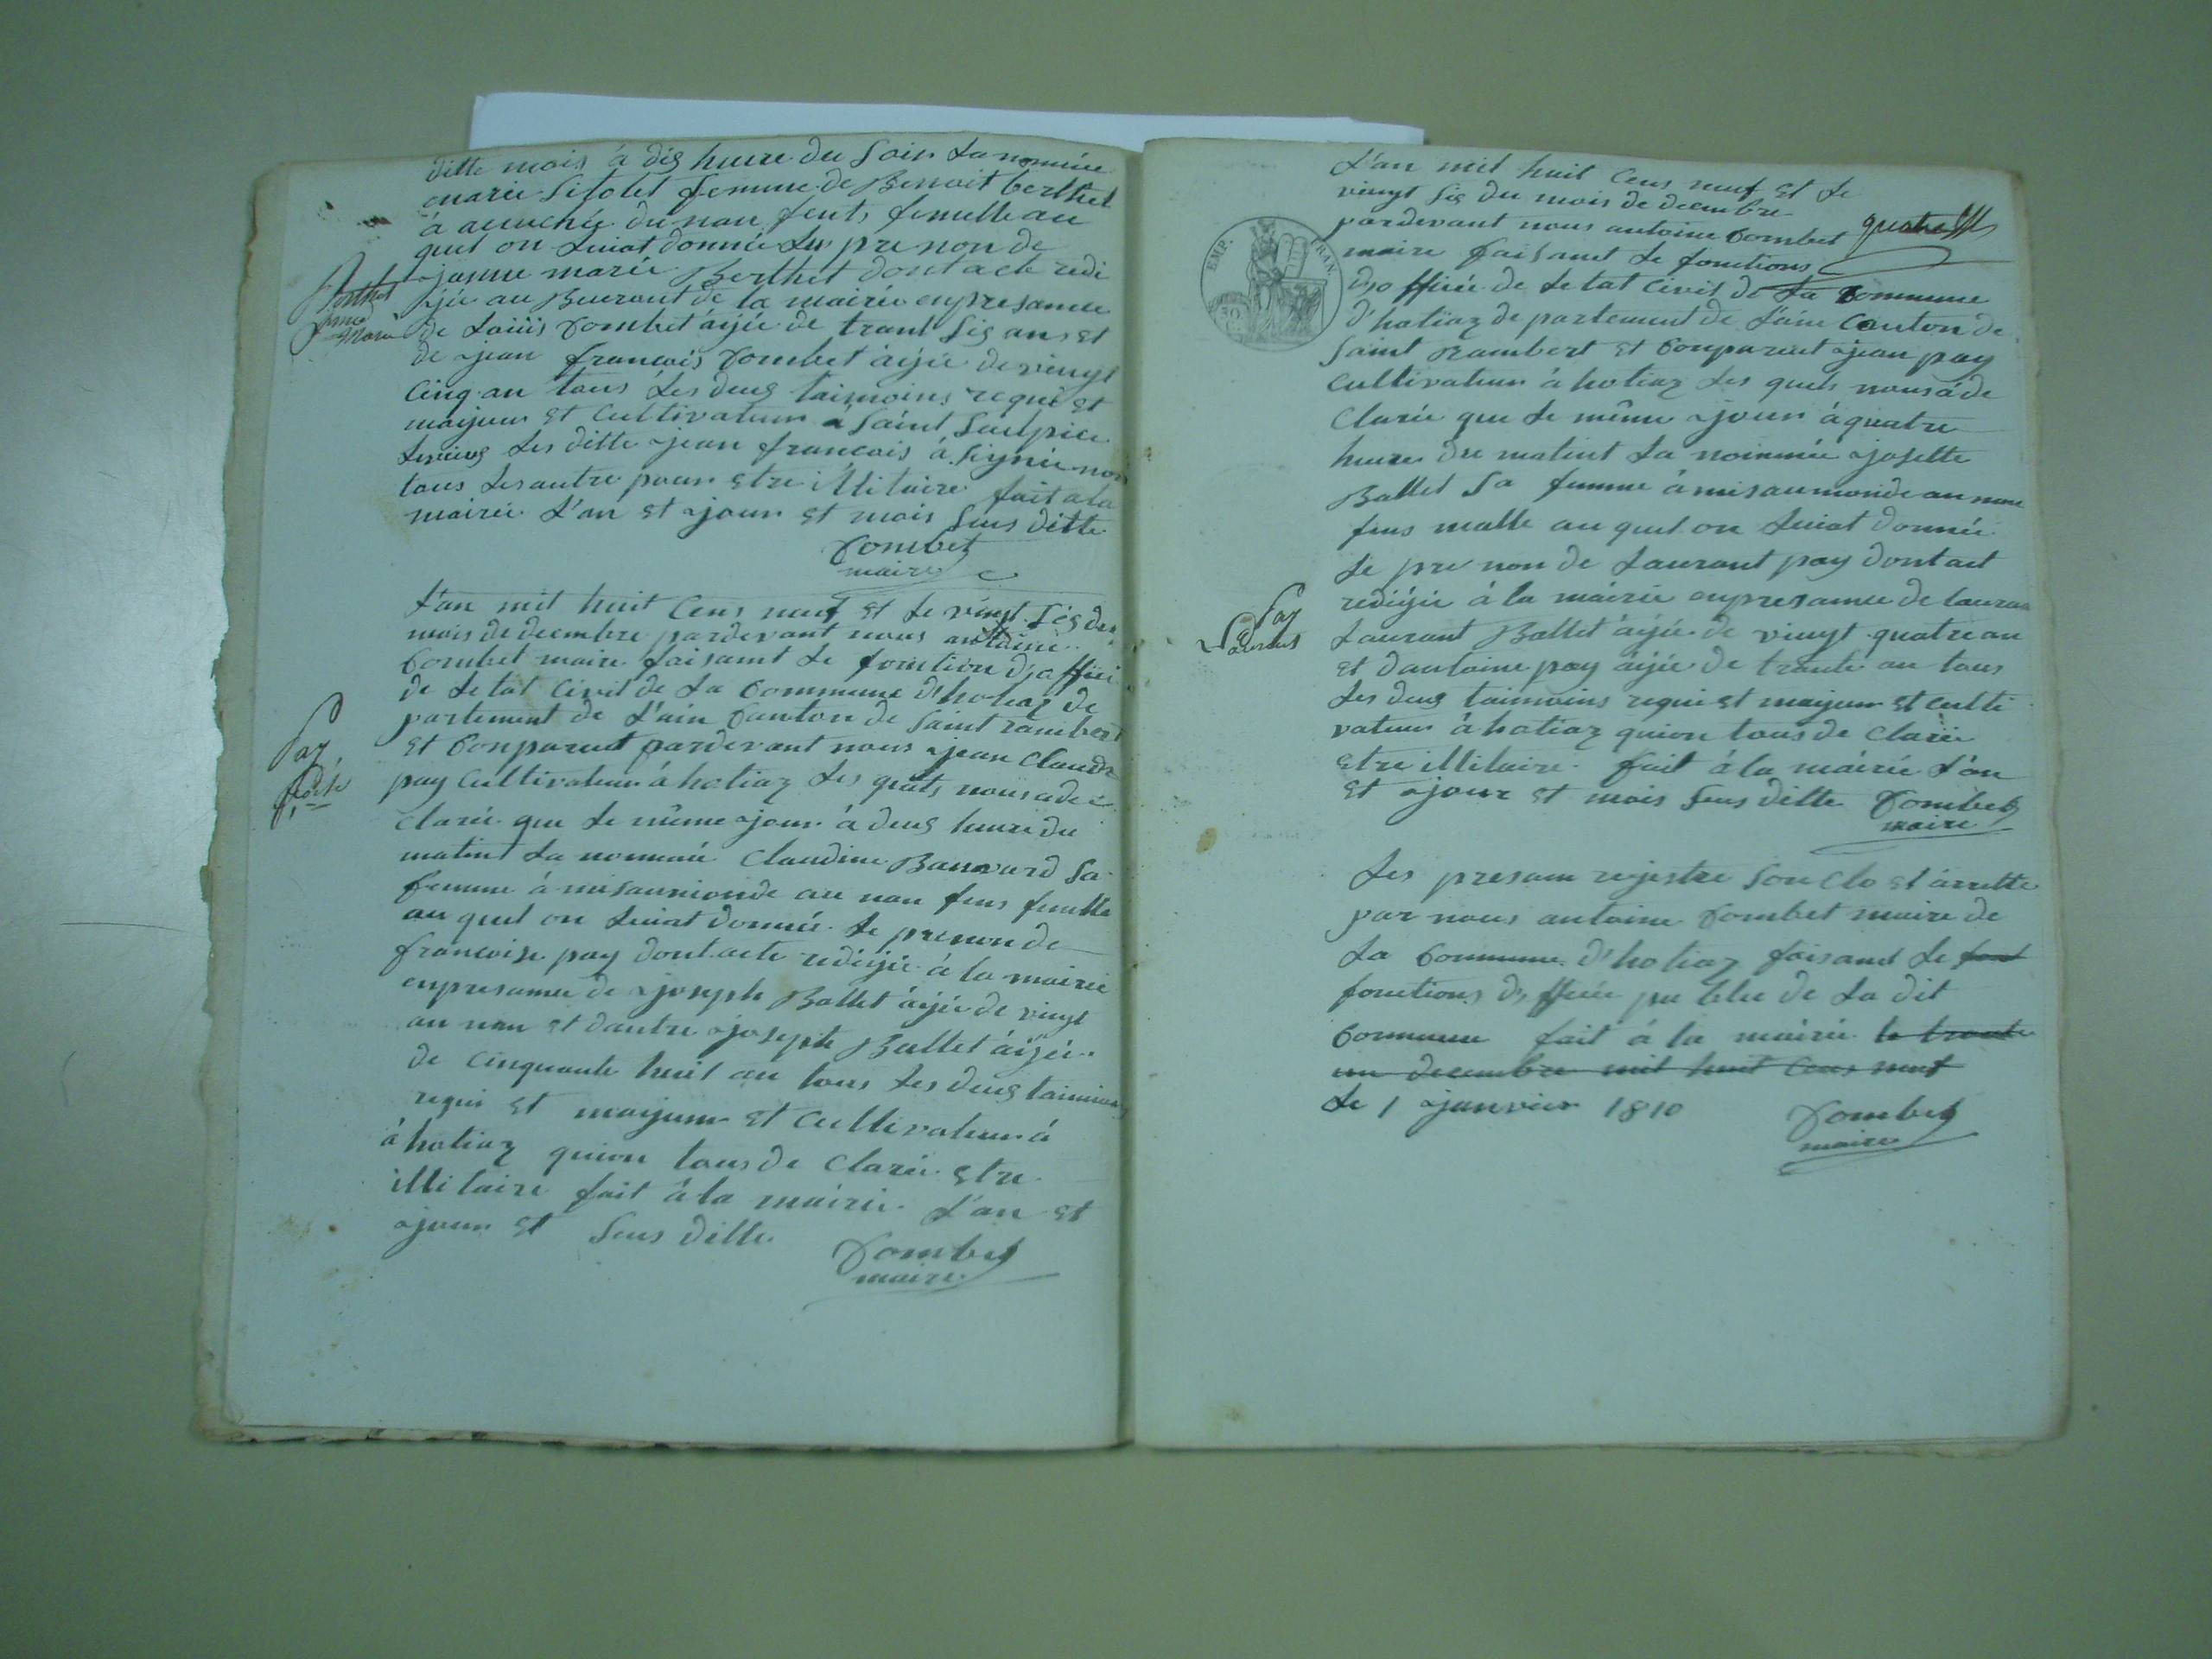 ditte mois à dis heure du soir la nommée
marie sifolet femme de Benoit berthet
à acuchée du nau fents femelle au
quel on luiat donnée les pre non de
jeanne marie Berthet dont acte redi
Berthet
janne
marie
jée au Beuraut de la mairie enpresance
de Louis Combet aijée de trant sis ans et
de jean francois Combet aijée de vingt
cinq an tous les deus taimoins requi et
maijeur et cultivateur a saint Sulpice
les ditte jean francois à signié non
tous les autre pour etre illitaire fait a la
mairie l'an et jour et mois sus ditte
Combet
maire
L'an mil huit cens neuf et le vingt sis du
mois de decembre pardevant nous antoine
Combet maire faisant le fonction d'offici
de l'etat civil de la Commune d'hotiaz de
partement de l'ain Canton de saint rambert
et Conparut pardevant nous jean claude
pay cultivateur à hotiaz les quels nous a de
pay
clarée que le même jour à deus heure du
matint la nommée claudine Bannard sa
femme à mis au monde au nau fens femelle
au quel on luiat donnée le prenon de
francoise pay dont acte redigée à la mairie
enpresance de joseph Ballet aijée de vingt
an nau et dautre joseph Ballet aijée
de cinquante huit an tous les deus taimoins
requi et maijeur et cultivateur à
à hotiaz quion tous de clarée etre
illitaire fait à la mairie l'an et
jour et sus ditte
Combet
maire
L'an mil huit cens neuf et le
vingt sis du mois de decembre
quatre
pardevant nous antoine Combet
maire faisant le fonctions
EMP. FRAN.
d'officiée de l'etat civil de la Commune
d'hotiaz de partement de l'ain Canton de
saint Rambert et Conparut jean pay
cultivateur à hotiaz les quels nous a de
clarée que le même jour à quatre
heure du matint la noimmée josette
Ballet sa femme à mis au monde au nau
fens malle au quel on luiat donnée
le pre non de Laurant pay dont act
redigée à la mairie enpresance de lauran
pay
Laurans
Laurant Ballet aijée de vingt quatre an
et dantoine pay aijée de trante an tous
les deus taimoins requi et maijeur et culti
vateur à hotiaz quion tous de clarée
etre illitaire fait à la mairie l'an
et jour et mois sus ditte Combet
maire
Les presam rejestre son clo et arrette
par nous antoine Combet maire de
la Commune d'hotiaz faisant le font
fonctions d'officiée publie de la dit
Commune fait à la mairie le trante
un decembre mil huit cens neuf
le 1 janvier 1810 Combet
maire